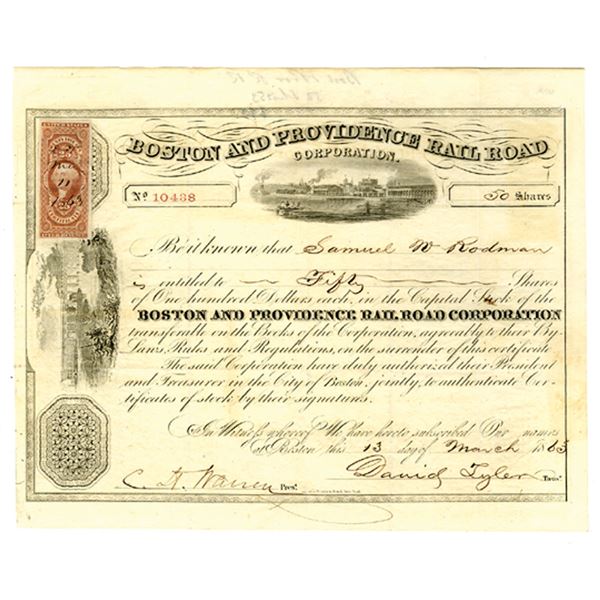 BOSTON AND PROVIDENCE RAIL ROAD
CORPORATION.
No 10438
50 Shares
1863
Be it known that Samuel W Rodman
is entitled to Fifty Shares
of One hundred Dollars each, in the Capital Stock of the
BOSTON AND PROVIDENCE RAIL ROAD CORPORATION
transferable on the Books of the Corporation, agreeably to their By
Laws, Rules and Regulations, on the surrender of this certificate
The said Corporation have duly authorized their President
and Treasurer in the City of Boston, jointly, to authenticate Cer-
tificates of stock by their signatures.
In Witness whereof We have hereto subscribed Our names
at Boston this 13 day of March 1863
C. H. Warren Prest.
David Tyler Treasr.